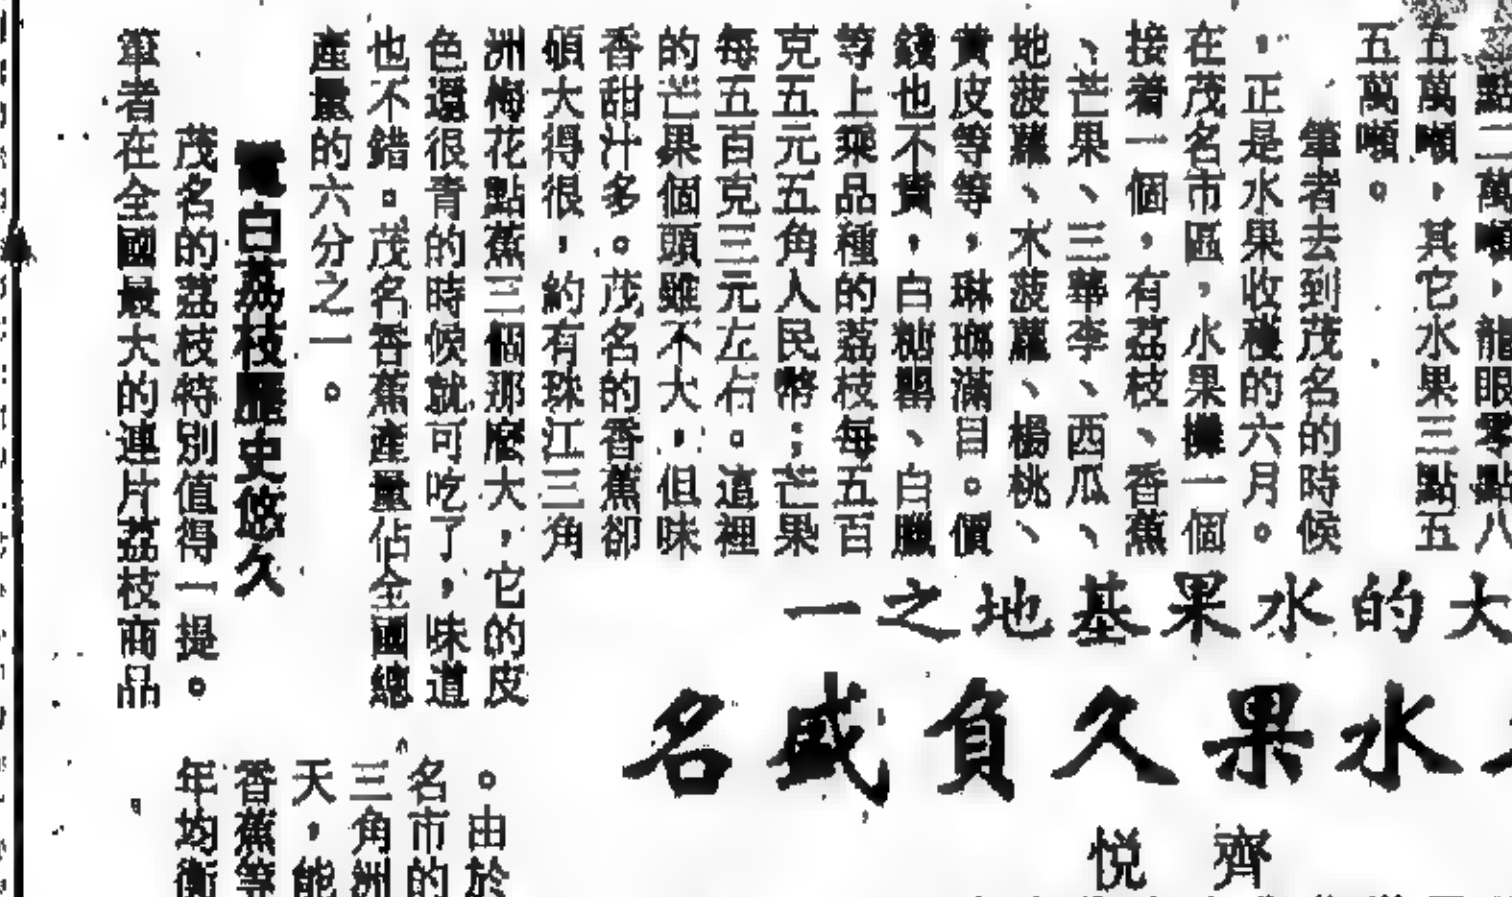 大的水果基地之一
水果久負盛名
齊悅
點二萬噸，龍眼零點八
五萬噸，其它水果三點五
五萬噸。
筆者去到茂名的時候
，正是水果收穫的六月。
在茂名市區，水果攤一個
接着一個，有荔枝、香蕉
、芒果、三華李、西瓜、
地菠蘿、木菠蘿、楊桃、
黃皮等等，琳瑯滿目。價
錢也不貴，白糖罌、白臘
等上乘品種的荔枝每五百
克五元五角人民幣；芒果
每五百克三元左右。這裡
的芒果個頭雖不大，但味
香甜汁多。茂名的香蕉卻
碩大得很，約有珠江三角
洲梅花點蕉三個那麼大，它的皮
色還很青的時候就可吃了，味道
也不錯。茂名香蕉產量佔全國總
產量的六分之一。
電白荔枝歷史悠久
茂名的荔枝特別值得一提。
筆者在全國最大的連片荔枝商品
。由於
名市的
三角洲
天，能
香蕉等
年均衡